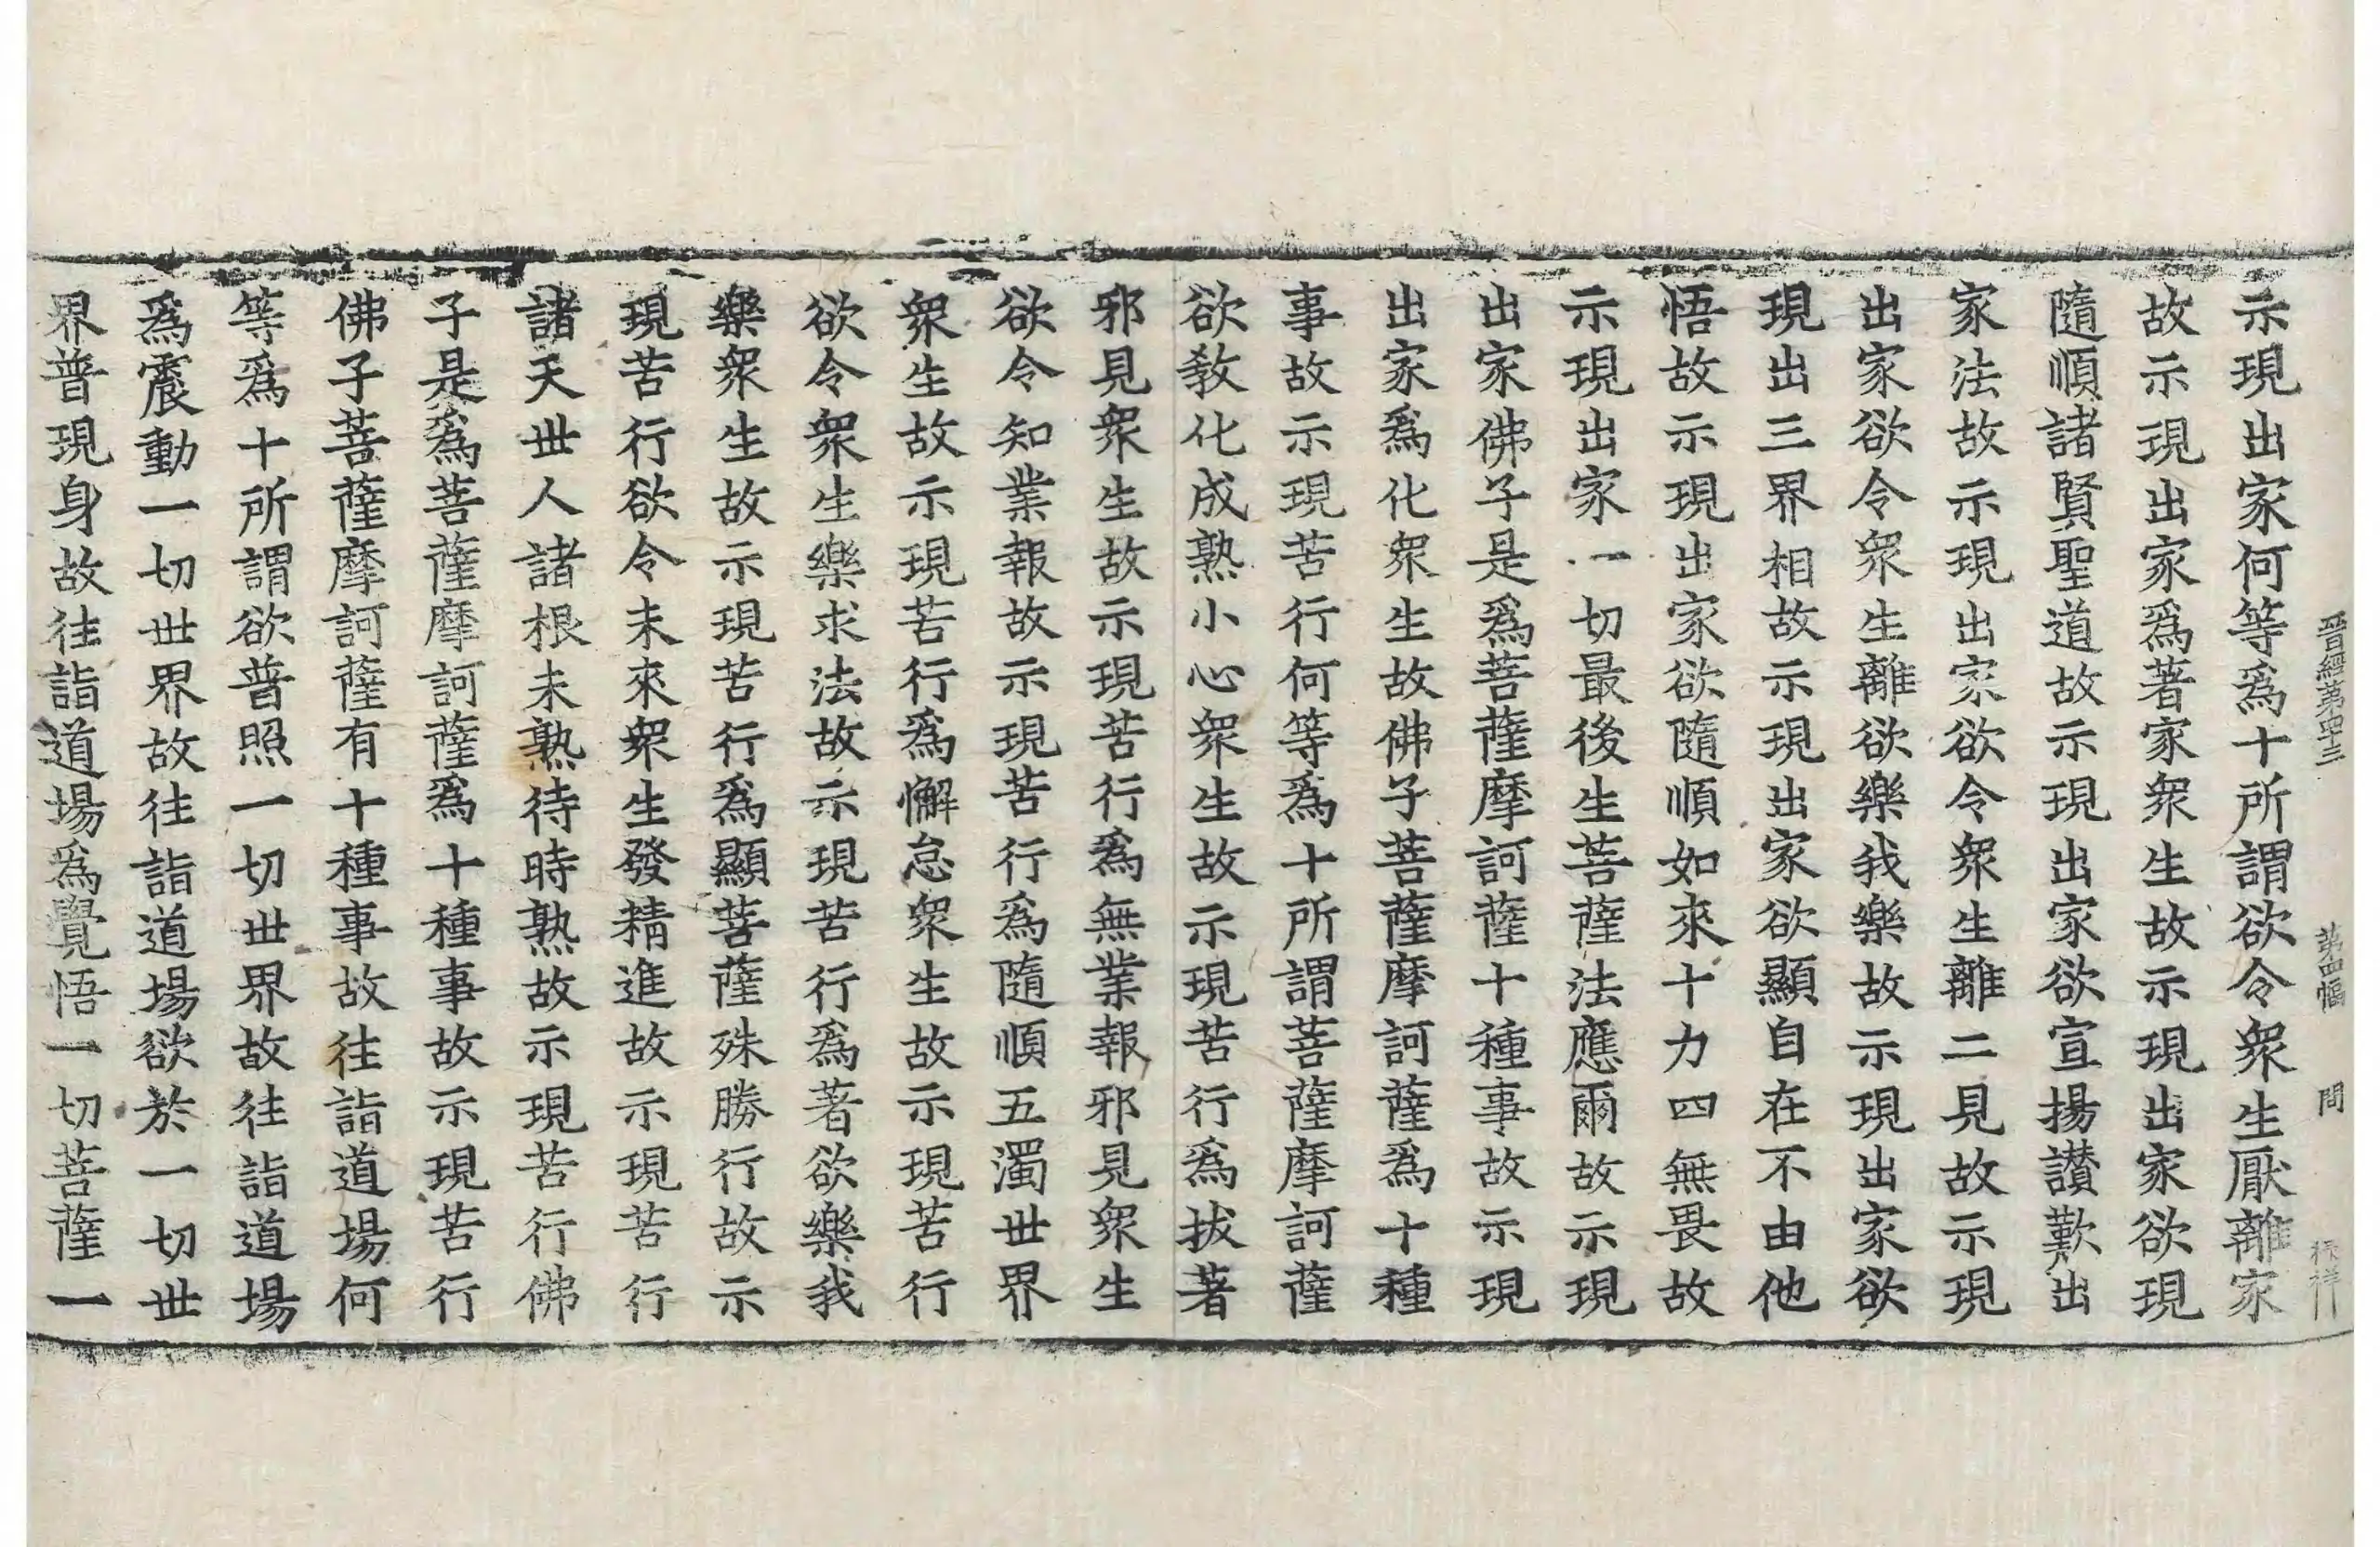 晋經第四十三 第四幅 問
示現出家何等爲十所謂欲令衆生厭離家
故示現出家爲著家衆生故示現出家欲現
隨順諸賢聖道故示現出家欲宣揚讃歎出
家法故示現出家欲令衆生離二見故示現
出家欲令衆生離欲樂我樂故示現出家欲
現出三界相故示現出家欲顯自在不由他
悟故示現出家欲隨順如來十力四無畏故
示現出家一切最後生菩薩法應爾故示現
出家佛子是爲菩薩摩訶薩十種事故示現
出家爲化衆生故佛子菩薩摩訶薩爲十種
事故示現苦行何等爲十所謂菩薩摩訶薩
欲教化成熟小心衆生故示現苦行爲拔著
邪見衆生故示現苦行爲無業報邪見衆生
欲令知業報故示現苦行爲隨順五濁世界
衆生故示現苦行爲懈怠衆生故示現苦行
欲令衆生樂求法故示現苦行爲著欲樂我
樂衆生故示現苦行爲顯菩薩殊勝行故示
現苦行欲令未來衆生發精進故示現苦行
諸天世人諸根未熟待時熟故示現苦行佛
子是爲菩薩摩訶薩爲十種事故示現苦行
佛子菩薩摩訶薩有十種事故往詣道場何
等爲十所謂欲普照一切世界故往詣道場
爲震動一切世界故往詣道場欲於一切世
界普現身故往詣道場爲覺悟一切菩薩一